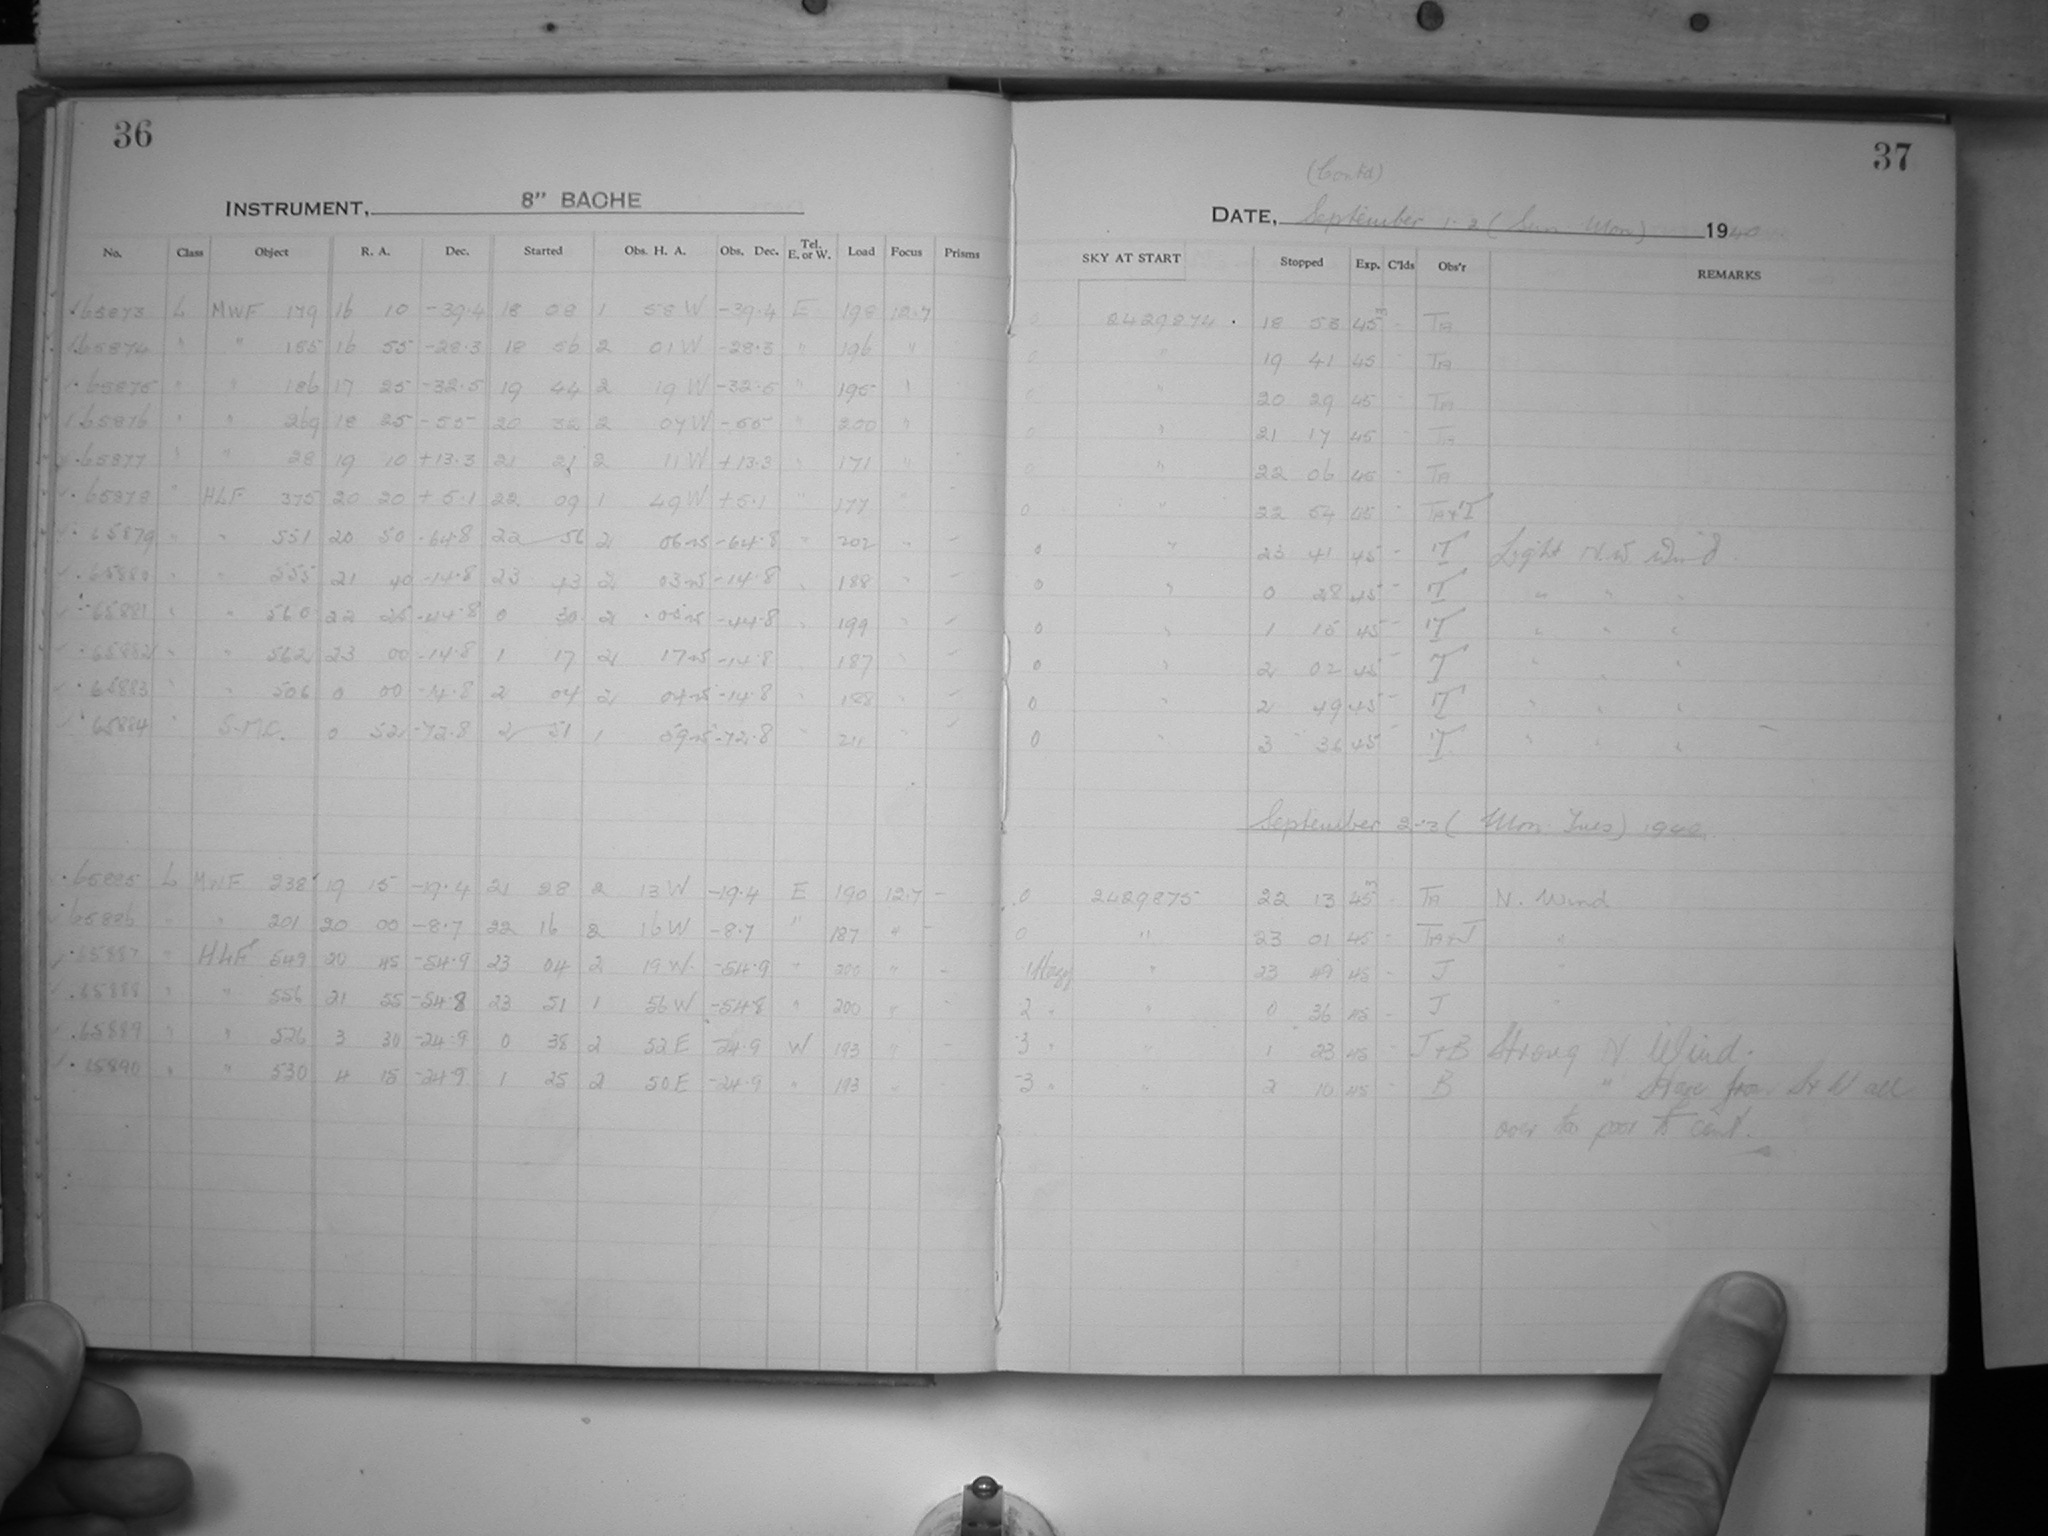 36
INSTRUMENT, 8" BACHE
No. Class Object R. A. Dec. Started Obs. H. A. Obs. Dec. Tel. E. or W. Load Focus Prisms
65873 L MWF 179 16 10 -39.4 18 08 1 58 W -39.4 E 198 12.7
65874 " " 155 16 55 -28.3 18 56 2 01 W -28.3 " 196 "
65875 " " 186 17 25 -32.5 19 44 2 19 W -32.5 " 195 "
65876 " " 269 18 25 -55 20 32 2 07 W -55 " 200 "
65877 " " 28 19 10 +13.3 21 21 2 11 W +13.3 " 171 "
65878 " HLF 375 20 20 +5.1 22 09 1 49 W +5.1 " 177 "
65879 " " 551 20 50 -64.8 22 56 2 06 W -64.8 " 202 " -
65880 " " 555 21 40 -14.8 23 43 2 03 W -14.8 " 188 " -
65881 " " 560 22 25 -44.8 0 30 2 05 W -44.8 " 199 " -
65882 " " 562 23 00 -14.8 1 17 2 17 W -14.8 " 187 " -
65883 " " 506 0 00 -14.8 2 04 2 04 W -14.8 " 188 " -
65884 " S.M.C. 0 52 -72.8 2 51 1 59 W -72.8 " 211 " -
65885 L MWF 238 19 15 -19.4 21 28 2 13 W -19.4 E 190 12.7 -
65886 " " 201 20 00 -8.7 22 16 2 16 W -8.7 " 187 " -
65887 " HLF 549 20 45 -54.9 23 04 2 19 W -54.9 " 200 " -
65888 " " 556 21 55 -54.8 23 51 1 56 W -54.8 " 200 " -
65889 " " 526 3 30 -24.9 0 38 2 52 E -24.9 W 193 " -
65890 " " 530 4 15 -24.9 1 25 2 50 E -24.9 " 193 " -
37
(Contd)
DATE, September 1-2 (Sun Mon) 1940
SKY AT START Stopped Exp. C'lds Obs'r REMARKS
0 2429874 . 18 53 45m - TA
0 " 19 41 45 - TA
0 " 20 29 45 TA
0 " 21 17 45 - TA
0 " 22 06 45 - TA
0 " 22 54 45 - TA+T
0 " 23 41 45 - T Light N.W Wind
0 " 0 28 45 - T " " "
0 " 1 15 45 - T " " "
0 " 2 02 45 - T " " "
0 " 2 49 45 - T " " "
0 " 3 36 45 T " " "
September 2-3 (Mon Tues) 1940
0 2429875 22 13 45m - TA N. Wind
0 " 23 01 45 - TA+J "
1 Hazy " 23 49 45 - J "
2 " " 0 36 45 - J "
3 " " 1 23 45 - J+B Strong N. Wind.
3 " " 2 10 45 - B " all
over too poor to